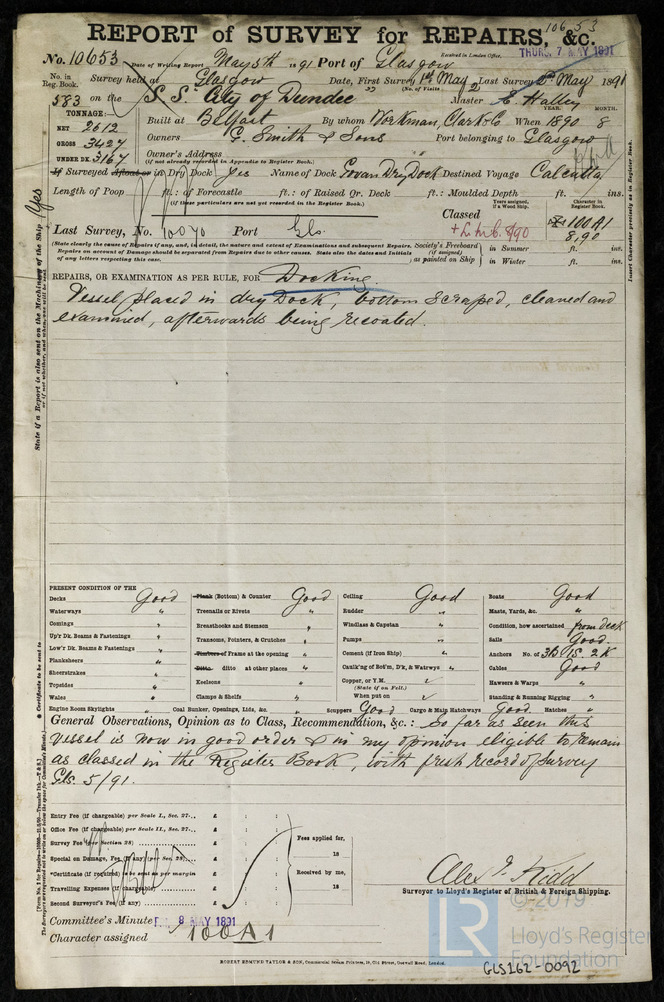 10653
REPORT of SURVEY for REPAIRS, &c.
Received in London Office,
THURS. 7 MAY 1891
No. 10653 Date of Writing Report May 5th 1891 Port of Glasgow
No. in Reg. Book. Survey held at Glasgow Date, First Survey 1st May Last Survey 2d May 1891
(No. of Visits 2
583 on the S.S. City of Dundee Master E. Halley
TONNAGE:— YEAR. MONTH.
NET 2612 Built at Belfast By whom Workman, Clark & Co. When 1890 8
GROSS 3427 Owners G. Smith & Sons Port belonging to Glasgow
UNDER DK. 3167 Owner's Address
(If not already recorded in Appendix to Register Book.)
If Surveyed Afloat or in Dry Dock Yes Name of Dock Govan Dry Dock Destined Voyage Calcutta
Length of Poop ft.: of Forecastle ft.: of Raised Qr. Deck ft.: Moulded Depth ft. ins.
(if these particulars are not yet recorded in the Register Book.)
Classed Years assigned, if a Wood Ship. Character in Register Book.
100A1
8,90
+LMC 8,90
Last Survey, No. 10070 Port Gls.
(State clearly the cause of Repairs if any, and, in detail, the nature and extent of Examinations and subsequent Repairs.
Repairs on account of Damage should be separated from Repairs due to other causes. State also the dates and Initials
of any letters respecting this case.)
Society's Freeboard (if assigned) as painted on Ship in Summer ft. ins.
in Winter ft. ins.
REPAIRS, OR EXAMINATION AS PER RULE, FOR Docking
Vessel placed in dry Dock, bottom scraped, cleaned and
examined, afterwards being recoated.
State if a Report is also sent on the Machinery of the Ship Yes
or if not whether, and when, one will be sent.
Insert Character precisely as in Register Book.
PRESENT CONDITION OF THE
Decks Good
Waterways "
Comings "
Up'r Dk. Beams & Fastenings "
Low'r Dk. Beams & Fastenings "
Planksheers "
Sheerstrakes "
Topsides "
Wales "
Engine Room Skylights "
Plank (Bottom) & Counter Good
Treenails or Rivets "
Breasthooks and Stemson "
Transoms, Pointers, & Crutches "
Timbers of Frame at the opening "
Ditto ditto at other places "
Keelsons "
Clamps & Shelfs "
Coal Bunker, Openings, Lids, &c. "
Ceiling Good
Rudder "
Windlass & Capstan "
Pumps "
Cement (if Iron Ship) "
Caulk'ng of Bot'm, D'k, & Watrwys "
Copper, or Y.M.
(State if on Felt.)
When put on
Scuppers Good Cargo & Main Hatchways Good
Boats Good
Masts, Yards, &c. "
Condition, how ascertained from deck
Sails Good.
Anchors No. of 3B 1S. 2K
Cables Good
Hawsers & Warps "
Standing & Running Rigging "
Hatches "
Certificate to be sent to
General Observations, Opinion as to Class, Recommendation, &c.: So far as seen this
vessel is now in good order & in my opinion eligible to remain
as classed in the Register Book, with fresh record of Survey
Gls. 5/91.
Entry Fee (if chargeable) per Scale I., Sec. 27 £ : :
Office Fee (if chargeable) per Scale II., Sec. 27 £ : :
Survey Fee (per Section 28) £ : :
Special or Damage, Fee, (if any) (per Sec. 28) £ : :
*Certificate (if required) to be sent as per margin £ : :
Travelling Expenses (if chargeable) £ : :
Second Surveyor's Fee (if any) £ : :
Fees applied for,
18
Received by me,
18
Alex J. Kidd
Surveyor to Lloyd's Register of British & Foreign Shipping.
Committee's Minute 8 MAY 1891
Character assigned 100A1
ROBERT EDMUND TAYLOR & SON, Commercial Steam Printers, 19, Old Street, Goswell Road, London.
© 2019
LR
Lloyd's Register
Foundation
GLS162-0092